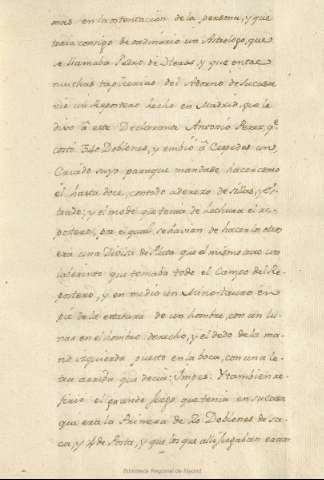 mas en la ostentacion de la persona, y que
traia consigo de ordinario un Astrologo, que
se llamaba Pedro de y que entre
muchas tapicerias del Adorno de su casa
vió un Repostero hecho en Madrid, que le
dixo á este Declarante Antonio Perez, qᵉ
costó 340 Doblones, y embió á Cespedes un
Criado suyo para que mandase hacer como
él hasta doce, con todo aderezo de Sillas, y Es-
trado; y el model que tenia de hechura el re-
postero, por el qual se havian de hacer los otros
era una Divisa de Plata que el mismo era un
laberinto que tomaba todo el Campo del Re-
postero, y en medio un Mino-tauro en
pie de la estatura de un hombre, con un
en el hombro derecho, y el dedo de la ma-
no izquierda puesto en la boca, con una le-
tra arriba que decia: Inspes. Y tambien re-
firio el grande Juego que tenia en su casa
que era la Primera de 20 Doblones de sa-
ca, y de Posta, y que los que alli jugaban eran
Biblioteca Regional de Madrid